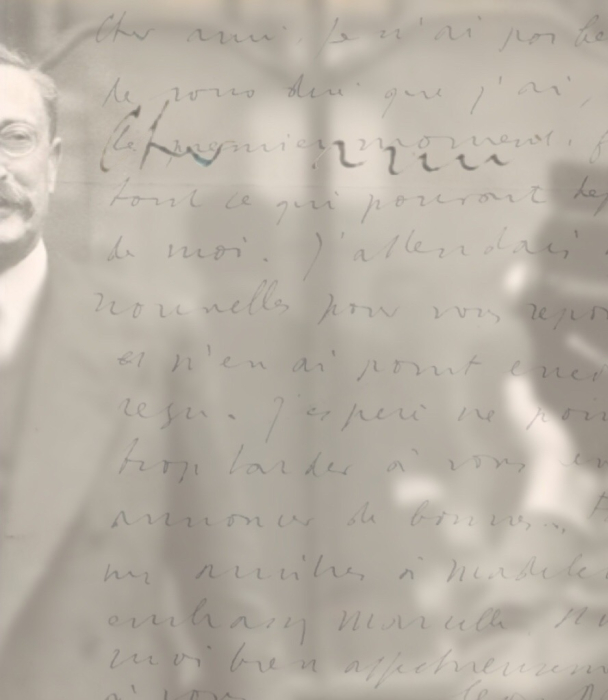 Cher ami, je n'ai pas be
de vous dire que j'ai,
le premier moment, f
Cher ami
tout ce qui pouvait dep
de moi. J'attendais
nouvelles pour vous repo
et n'en ai point enco
reçu. J'espère ne poin
trop tarder à vous en
annoncer de bonnes.
mes amitiés à Madele
embrassez Marcelle
moi bien affectueusem
à vous